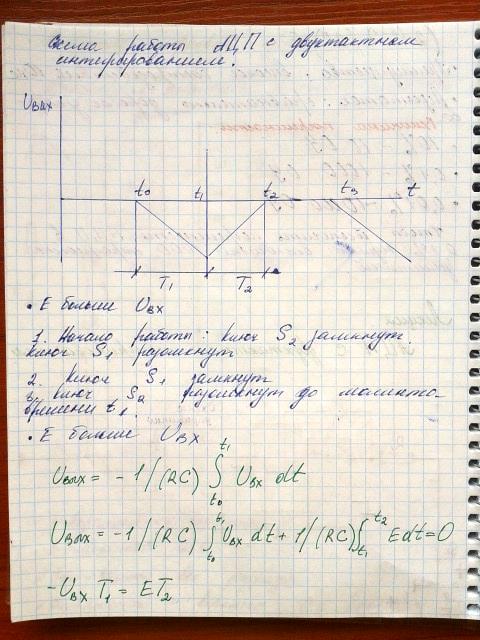 Схема работы АЦП с двухтактным
интегрированием.
Uвых
t0 t1 t2 t3 t
T1 T2
• E больше Uвх
1. Начало работы: ключ S2 замкнут.
ключ S1 разомкнут
2. Ключ S1 замкнут
ключ S2 разомкнут до момента
времени t1.
• E больше Uвх
Uвых = - 1/(RC) ∫t0t1 Uвх dt
Uвых = -1/(RC) ∫t0t1 Uвх dt + 1/(RC) ∫t1t2 E dt = 0
-Uвх T1 = ET2